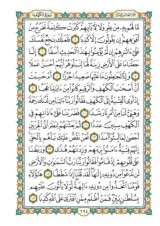 مَّا لَهُم بِهِ مِنْ عِلْمٍ وَلَا لِآبَائِهِمْ كَبُرَتْ كَلِمَةً تَخْرُجُ مِنْ
أَفْوَاهِهِمْ إِن يَقُولُونَ إِلَّا كَذِبًا فَلَعَلَّكَ بَاخِعٌ نَّفْسَكَ
عَلَى آثَارِهِمْ إِن لَّمْ يُؤْمِنُوا بِهَذَا الْحَدِيثِ أَسَفًا إِنَّا
جَعَلْنَا مَا عَلَى الْأَرْضِ زِينَةً لَّهَا لِنَبْلُوَهُمْ أَيُّهُمْ أَحْسَنُ عَمَلًا
وَإِنَّا لَجَاعِلُونَ مَا عَلَيْهَا صَعِيدًا جُرُزًا أَمْ حَسِبْتَ
أَنَّ أَصْحَابَ الْكَهْفِ وَالرَّقِيمِ كَانُوا مِنْ آيَاتِنَا عَجَبًا
إِذْ أَوَى الْفِتْيَةُ إِلَى الْكَهْفِ فَقَالُوا رَبَّنَا آتِنَا مِن لَّدُنكَ رَحْمَةً
وَهَيِّئْ لَنَا مِنْ أَمْرِنَا رَشَدًا فَضَرَبْنَا عَلَى آذَانِهِمْ فِي
الْكَهْفِ سِنِينَ عَدَدًا ثُمَّ بَعَثْنَاهُمْ لِنَعْلَمَ أَيُّ الْحِزْبَيْنِ أَحْصَى
لِمَا لَبِثُوا أَمَدًا نَّحْنُ نَقُصُّ عَلَيْكَ نَبَأَهُم بِالْحَقِّ إِنَّهُمْ
فِتْيَةٌ آمَنُوا بِرَبِّهِمْ وَزِدْنَاهُمْ هُدًى وَرَبَطْنَا
عَلَى قُلُوبِهِمْ إِذْ قَامُوا فَقَالُوا رَبُّنَا رَبُّ السَّمَاوَاتِ وَالْأَرْضِ
لَن نَّدْعُوَ مِن دُونِهِ إِلَهًا لَّقَدْ قُلْنَا إِذًا شَطَطًا هَؤُلَاءِ
قَوْمُنَا اتَّخَذُوا مِن دُونِهِ آلِهَةً لَّوْلَا يَأْتُونَ عَلَيْهِم
بِسُلْطَانٍ بَيِّنٍ فَمَنْ أَظْلَمُ مِمَّنِ افْتَرَى عَلَى اللَّهِ كَذِبًا
٢٩٤